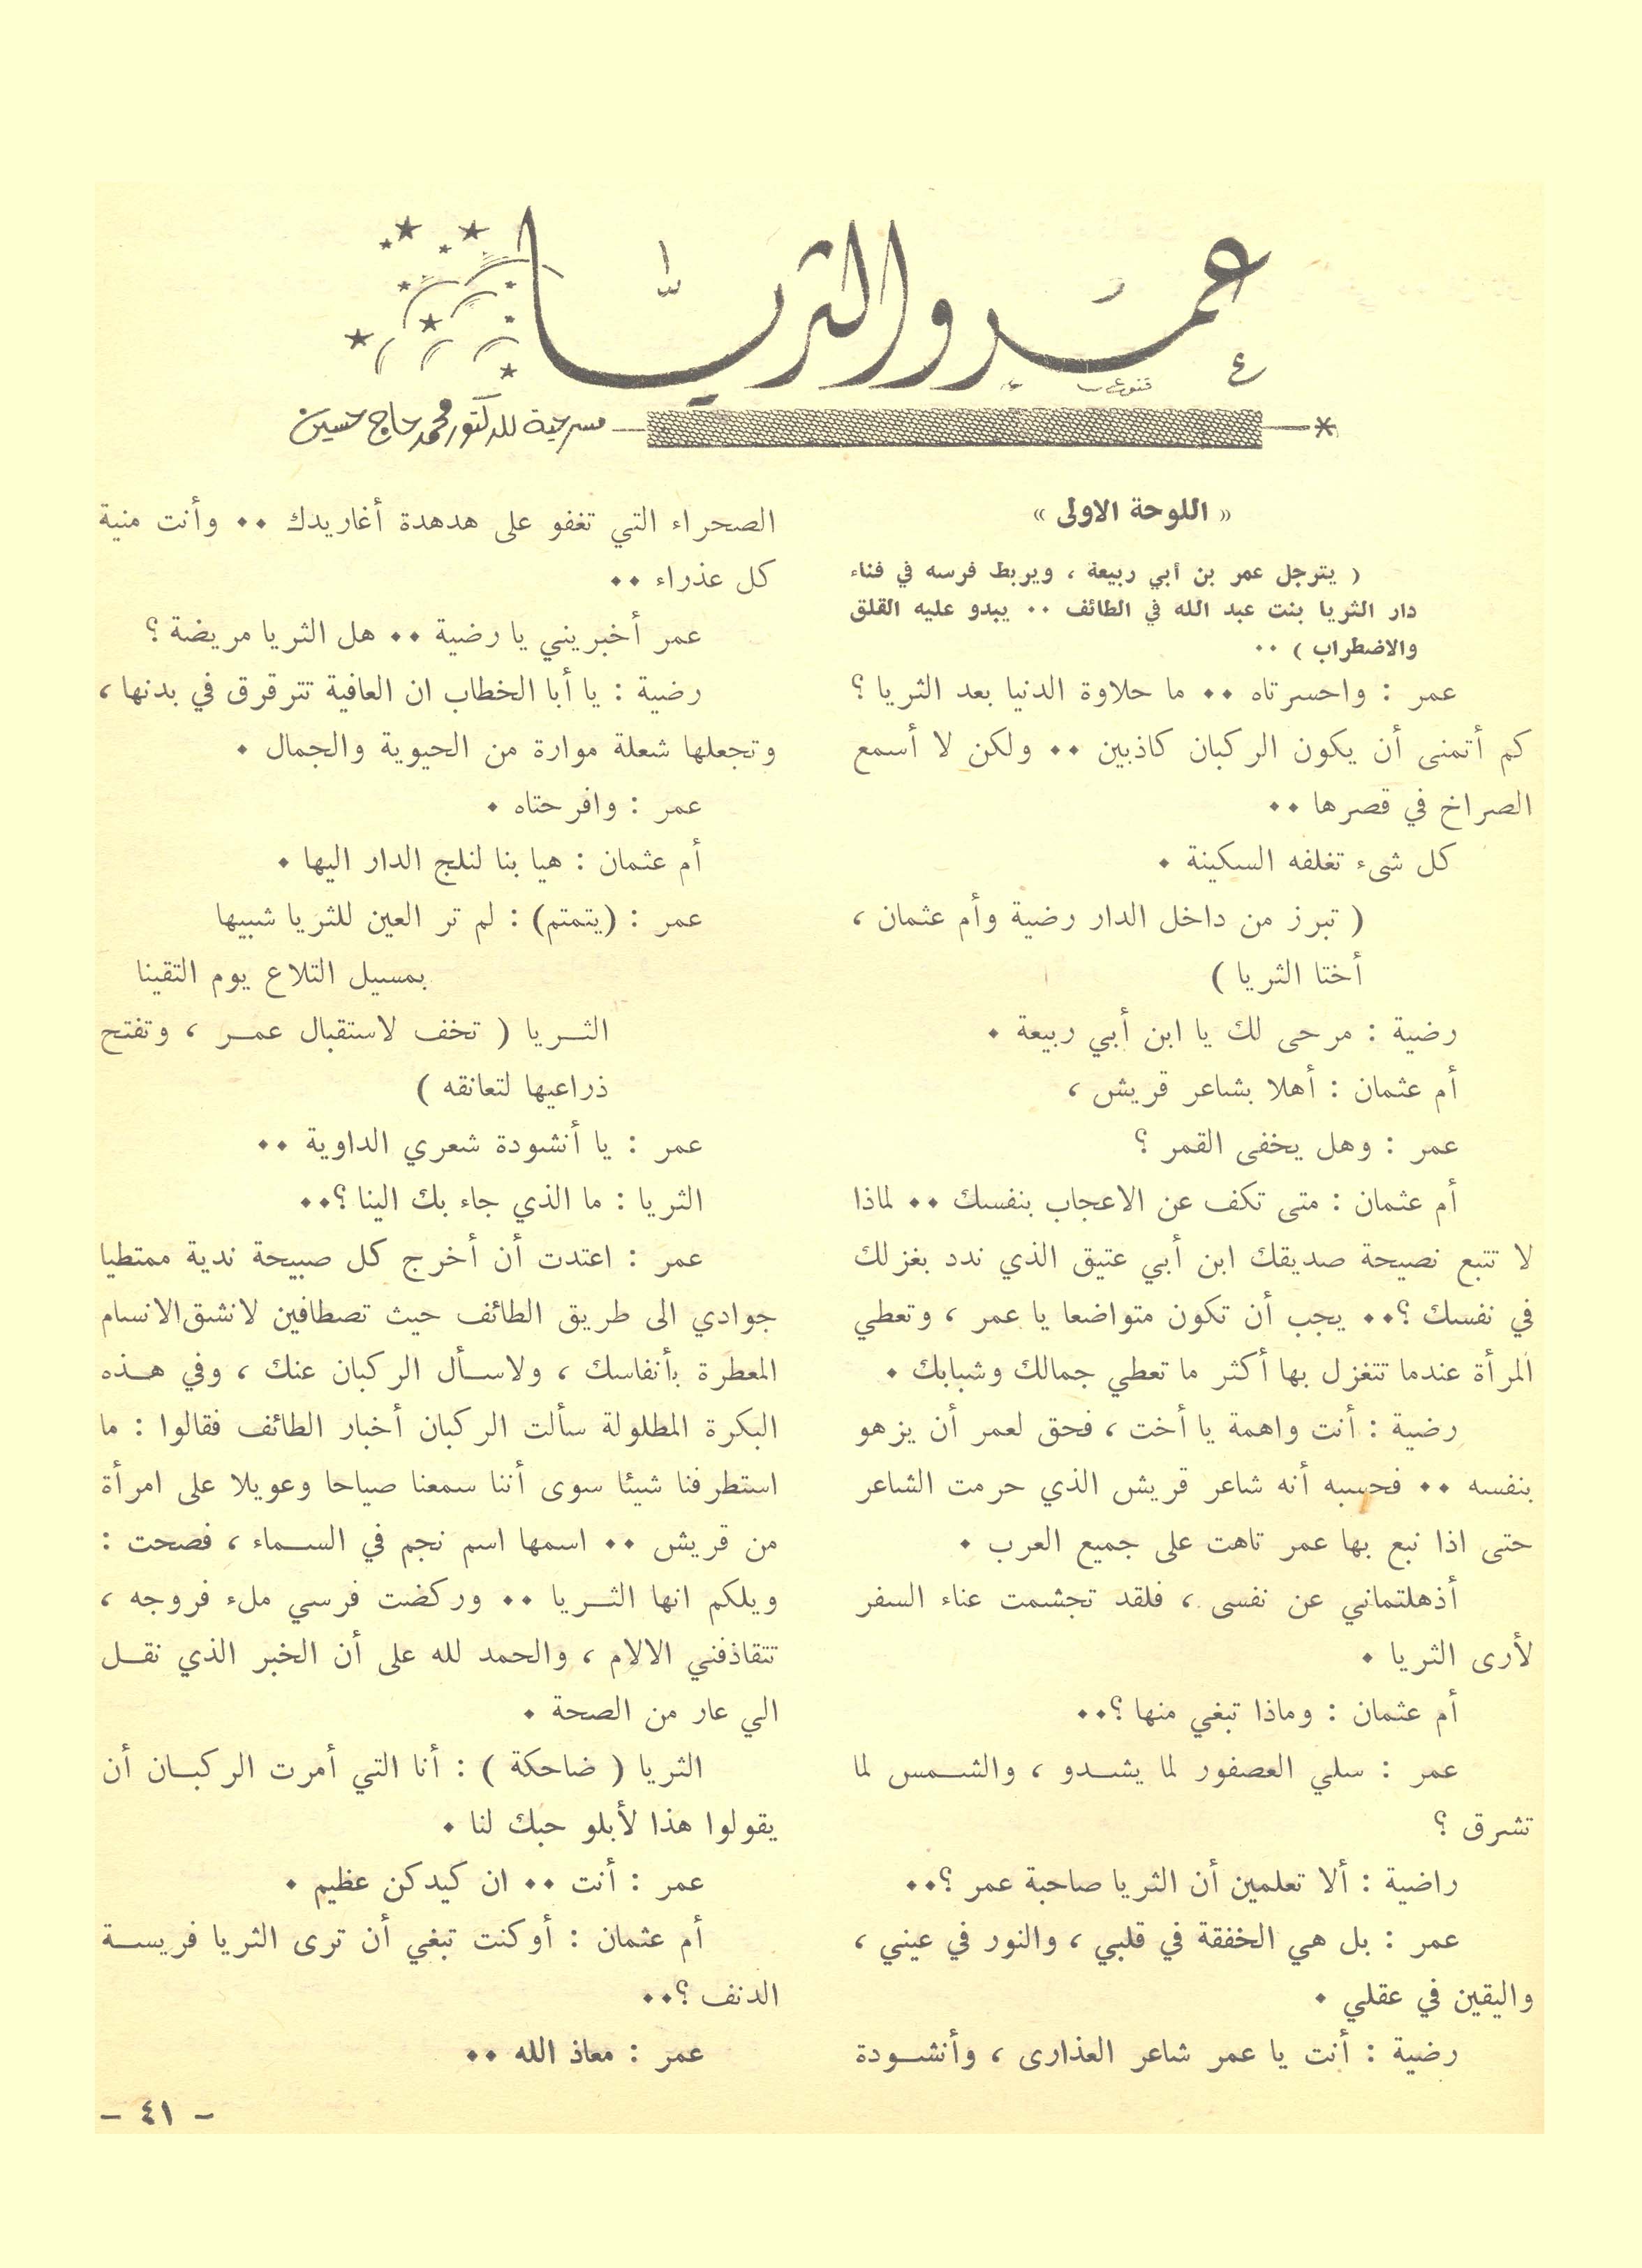 عمر والثريا
مسرحية للدكتور محمد حاج حسين
« اللوحة الاولى »
( يترجل عمر بن أبي ربيعة ، ويربط فرسه في فناء
دار الثريا بنت عبد الله في الطائف ٠٠ يبدو عليه القلق
والاضطراب ) ٠٠
عمر : واحسرتاه ٠٠ ما حلاوة الدنيا بعد الثريا ؟
كم أتمنى أن يكون الركبان كاذبين ٠٠ ولكن لا أسمع
الصراخ في قصرها ٠٠
كل شىء تغلفه السكينة ٠
( تبرز من داخل الدار رضية وأم عثمان ،
أختا الثريا )
رضية : مرحى لك يا ابن أبي ربيعة ٠
أم عثمان : أهلا بشاعر قريش ،
عمر : وهل يخفى القمر ؟
أم عثمان : متى تكف عن الاعجاب بنفسك ٠٠ لماذا
لا تتبع نصيحة صديقك ابن أبي عتيق الذي ندد بغزلك
في نفسك ؟٠٠ يجب أن تكون متواضعا يا عمر ، وتعطي
المرأة عندما تتغزل بها أكثر ما تعطي جمالك وشبابك ٠
رضية : أنت واهمة يا أخت ، فحق لعمر أن يزهو
بنفسه ٠٠ فحسبه أنه شاعر قريش الذي حرمت الشاعر
حتى اذا نبع بها عمر تاهت على جميع العرب ٠
أذهلتماني عن نفسى ، فلقد تجشمت عناء السفر
لأرى الثريا ٠
أم عثمان : وماذا تبغي منها ؟٠٠
عمر : سلي العصفور لما يشدو ، والشمس لما
تشرق ؟
راضية : ألا تعلمين أن الثريا صاحبة عمر ؟٠٠
عمر : بل هي الخفقة في قلبي ، والنور في عيني ،
واليقين في عقلي ٠
رضية : أنت يا عمر شاعر العذارى ، وأنشودة
الصحراء التي تغفو على هدهدة أغاريدك ٠٠ وأنت منية
كل عذراء ٠٠
عمر أخبريني يا رضية ٠٠ هل الثريا مريضة ؟
رضية : يا أبا الخطاب ان العافية تترقرق في بدنها ،
وتجعلها شعلة موارة من الحيوية والجمال ٠
عمر : وافرحتاه ٠
أم عثمان : هيا بنا لنلج الدار اليها ٠
عمر : (يتمتم) : لم تر العين للثريا شبيها
بمسيل التلاع يوم التقينا
الثريا ( تخف لاستقبال عمر ، وتفتح
ذراعيها لتعانقه )
عمر : يا أنشودة شعري الداوية ٠٠
الثريا : ما الذي جاء بك الينا ؟٠٠
عمر : اعتدت أن أخرج كل صبيحة ندية ممتطيا
جوادي الى طريق الطائف حيث تصطافين لانشق الانسام
المعطرة بأنفاسك ، ولاسأل الركبان عنك ، وفي هذه
البكرة المطلولة سألت الركبان أخبار الطائف فقالوا : ما
استطرفنا شيئا سوى أننا سمعنا صياحا وعويلا على امرأة
من قريش ٠٠ اسمها اسم نجم في السماء ، فصحت :
ويلكم انها الثريا ٠٠ وركضت فرسي ملء فروجه ،
تتقاذفني الالام ، والحمد لله على أن الخبر الذي نقل
الي عار من الصحة ٠
الثريا ( ضاحكة ) : أنا التي أمرت الركبان أن
يقولوا هذا لأبلو حبك لنا ٠
عمر : أنت ٠٠ ان كيدكن عظيم ٠
أم عثمان : أوكنت تبغي أن ترى الثريا فريسة
الدنف ؟٠٠
عمر : معاذ الله ٠٠
- ٤١ -